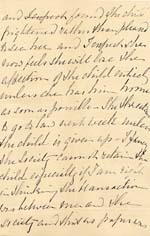 and Liverpool found the child
frightened rather than pleased
to see her and
now feels she will lose the
affection of the child entirely
unless she has him home
as soon as possible. She
to go to law next week unless
the child is given up. I fancy
the Society cannot retain the
child especially if I am right
in thinking the transaction
was between me and the
Society and this as papers